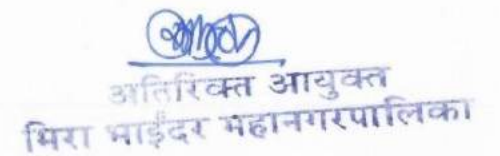 अतिरिक्त आयुक्त
मिरा भाईंदर महानगरपालिका